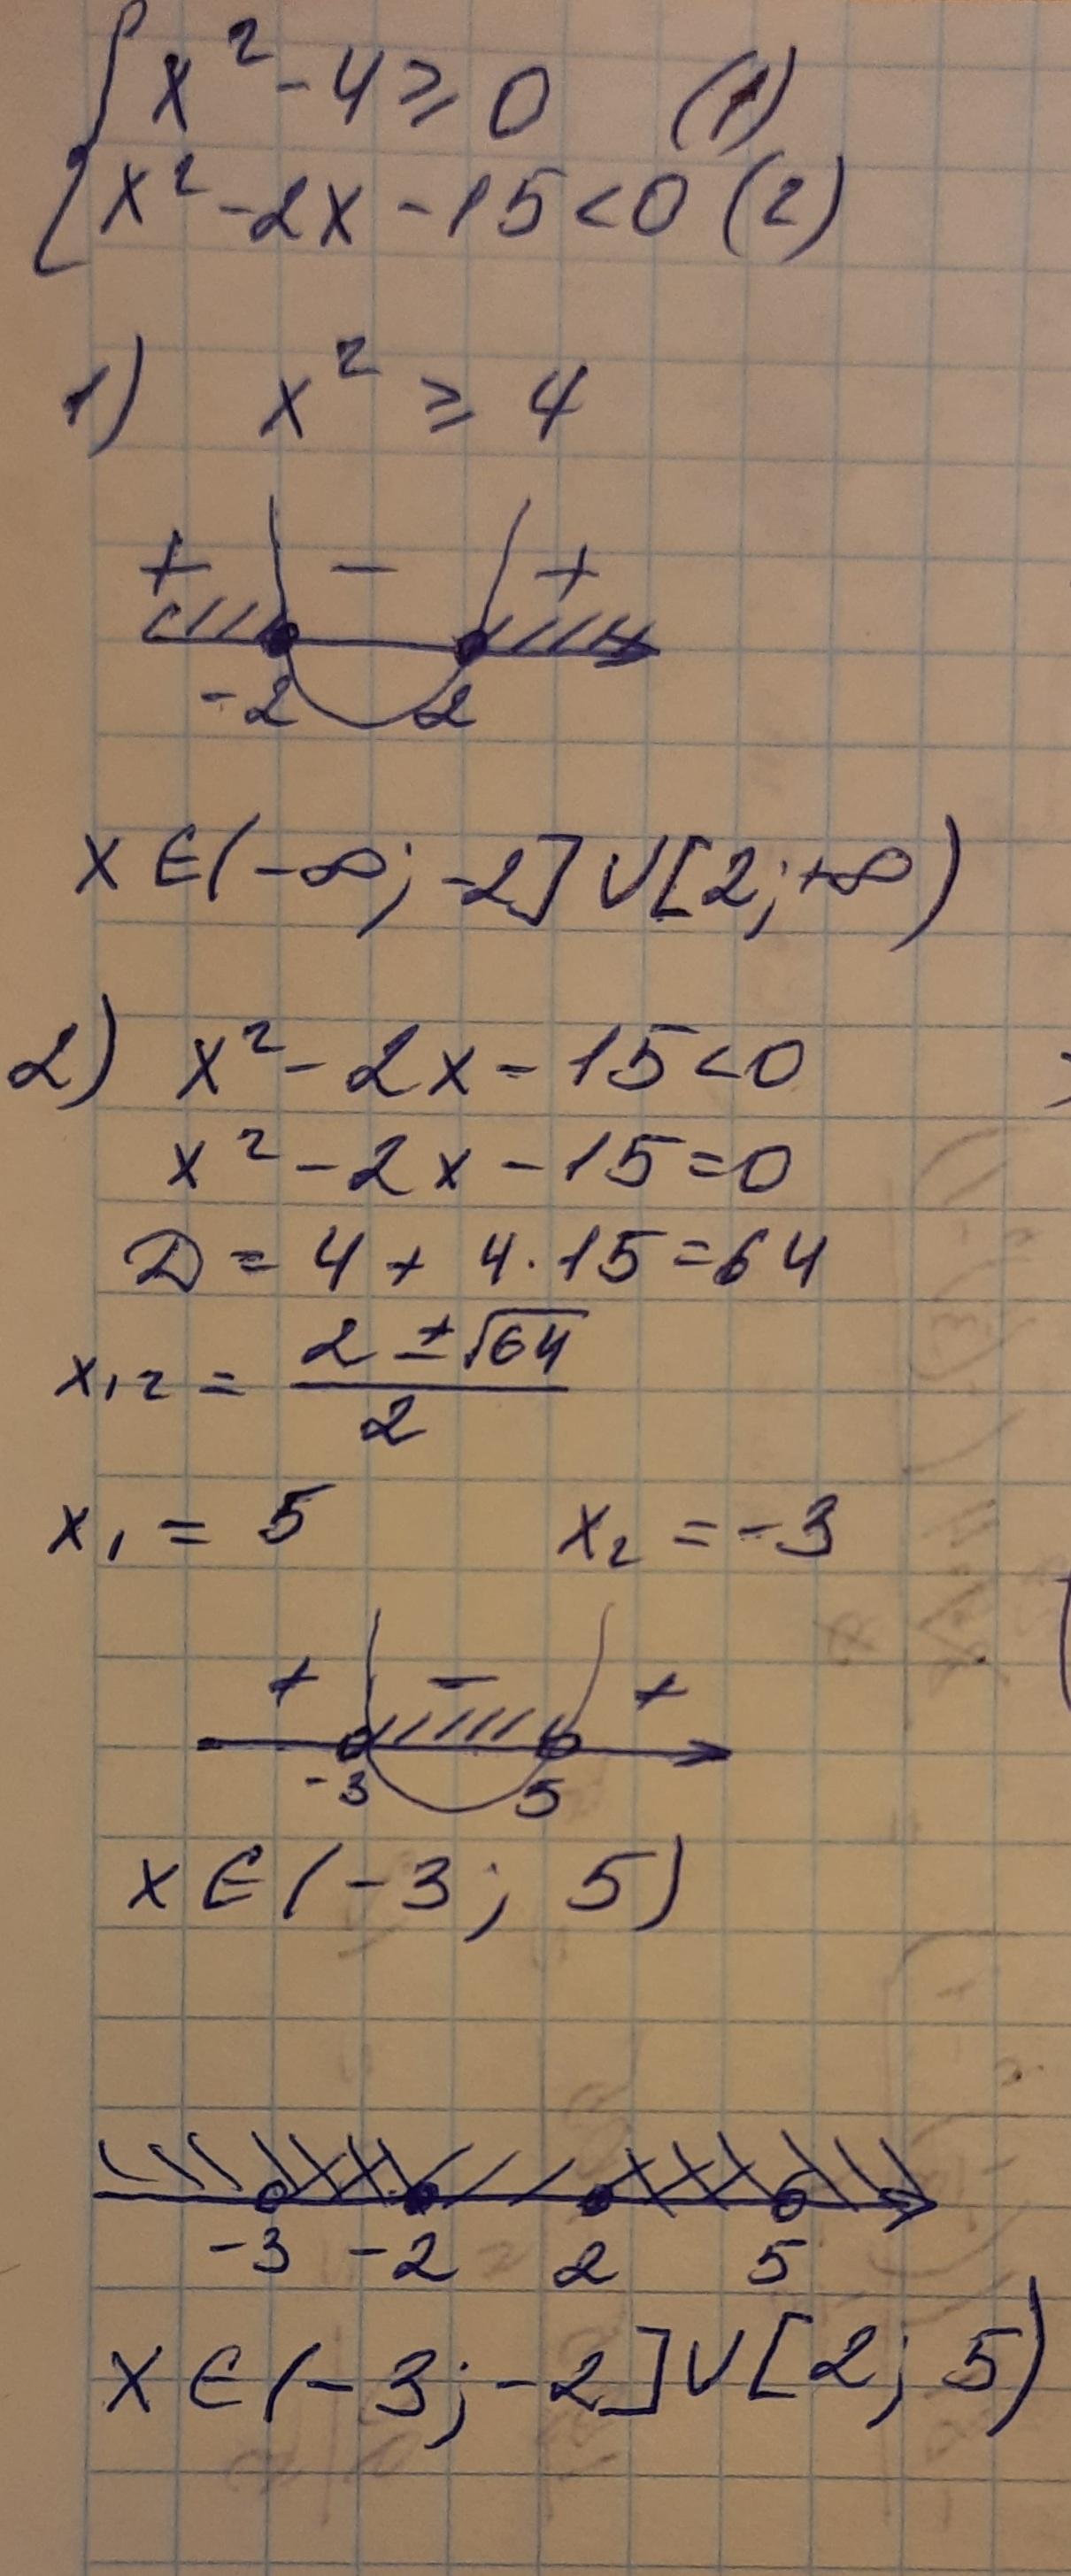 { x² - 4 ≥ 0 (1)
x² - 2x - 15 < 0 (2)
1) x² ≥ 4
+ - +
-2 2
x ∈ (-∞; -2] ∪ [2; +∞)
2) x² - 2x - 15 < 0
x² - 2x - 15 = 0
D = 4 + 4 · 15 = 64
x₁,₂ = (2 ± √64) / 2
x₁ = 5 x₂ = -3
+ - +
-3 5
x ∈ (-3; 5)
-3 -2 2 5
x ∈ (-3; -2] ∪ [2; 5)